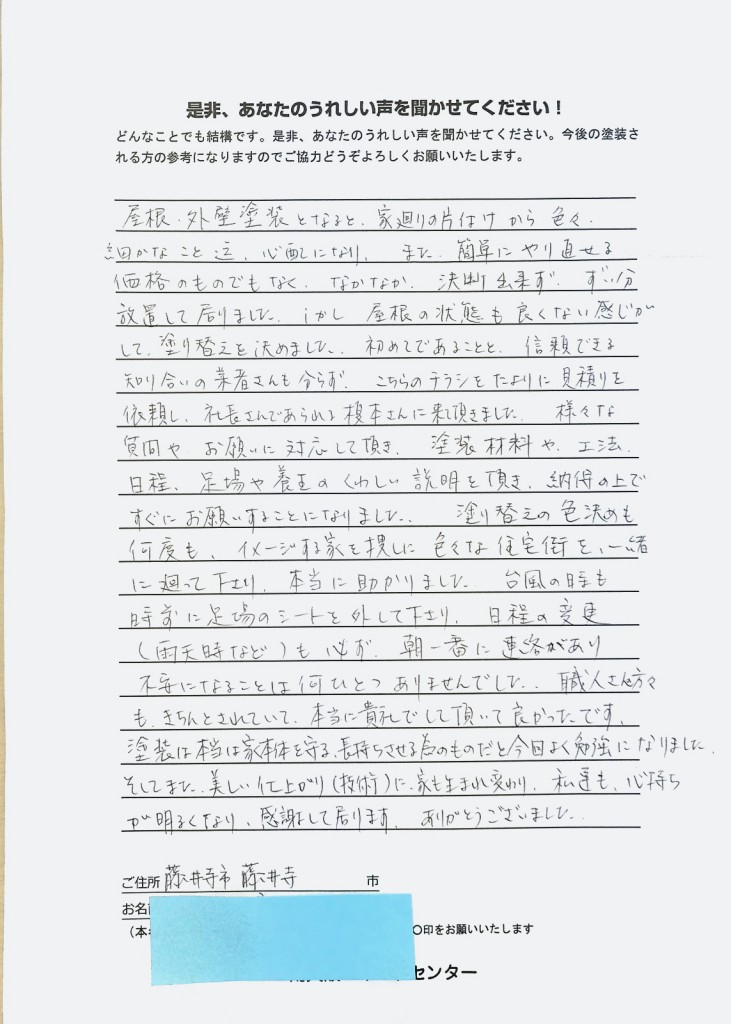 是非、あなたのうれしい声を聞かせてください！
どんなことでも結構です。是非、あなたのうれしい声を聞かせてください。今後の塗装さ
れる方の参考になりますのでご協力どうぞよろしくお願いいたします。
屋根・外壁塗装となると、家廻りの片付けから色々、
細かなこと迄、心配になり、また、簡単にやり直せる
価格のものでもなく、なかなか、決断出来ず、ずい分
放置して居りました。しかし 屋根の状態も良くない感じが
して、塗り替えを決めました。初めてであることと、信頼できる
知り合いの業者さんも分らず、こちらのチラシをたよりに見積りを
依頼し、社長さんであられる榎本さんに来て頂きました。様々な
質問や、お願いに対応して頂き、塗装材料や、工法、
日程、足場や養生のくわしい説明を頂き、納得の上で
すぐにお願いすることになりました。 塗り替えの色決めも
何度も、イメージする家を捜しに色々な住宅街を、一緒
に廻って下さり、本当に助かりました。 台風の時も
時前に足場のシートを外して下さり、日程の変更
(雨天時など)も必ず、朝一番に連絡があり
不安になることは何ひとつありませんでした。職人さん方々
も、きちんとされていて、本当に貴社でして頂いて良かったです。
塗装は本当は家本体を守る、長持ちさせる為のものだと今回よく勉強になりました。
そしてまた、美しい仕上がり(技術)に、家も生まれ変わり、私達も、心持ち
が明るくなり、感謝して居ります。ありがとうございました。
ご住所 藤井寺市 藤井寺 市
お名前
(本 〇印をお願いいたします
センター